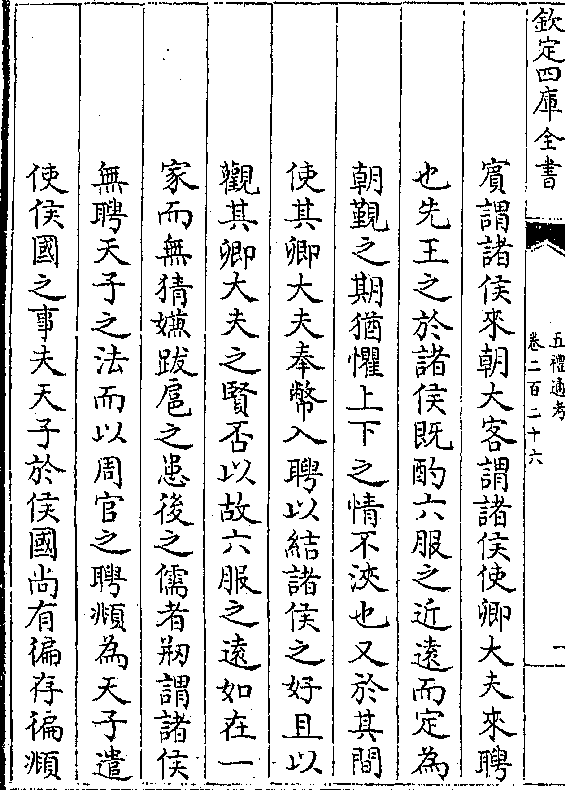 欽定四庫全書
五禮通考
卷二百二十六
一
賓謂諸侯來朝大客謂諸侯使卿大夫來聘
也先王之於諸侯既酌六服之近遠而定為
朝覲之期猶懼上下之情不浹也又於其間
使其卿大夫奉幣入聘以結諸侯之好且以
觀其卿大夫之賢否以故六服之遠如在一
家而無猜嫌跋扈之患後之儒者刱謂諸侯
無聘天子之法而以周官之聘頫為天子遣
使侯國之事夫天子於侯國尚有徧存徧頫